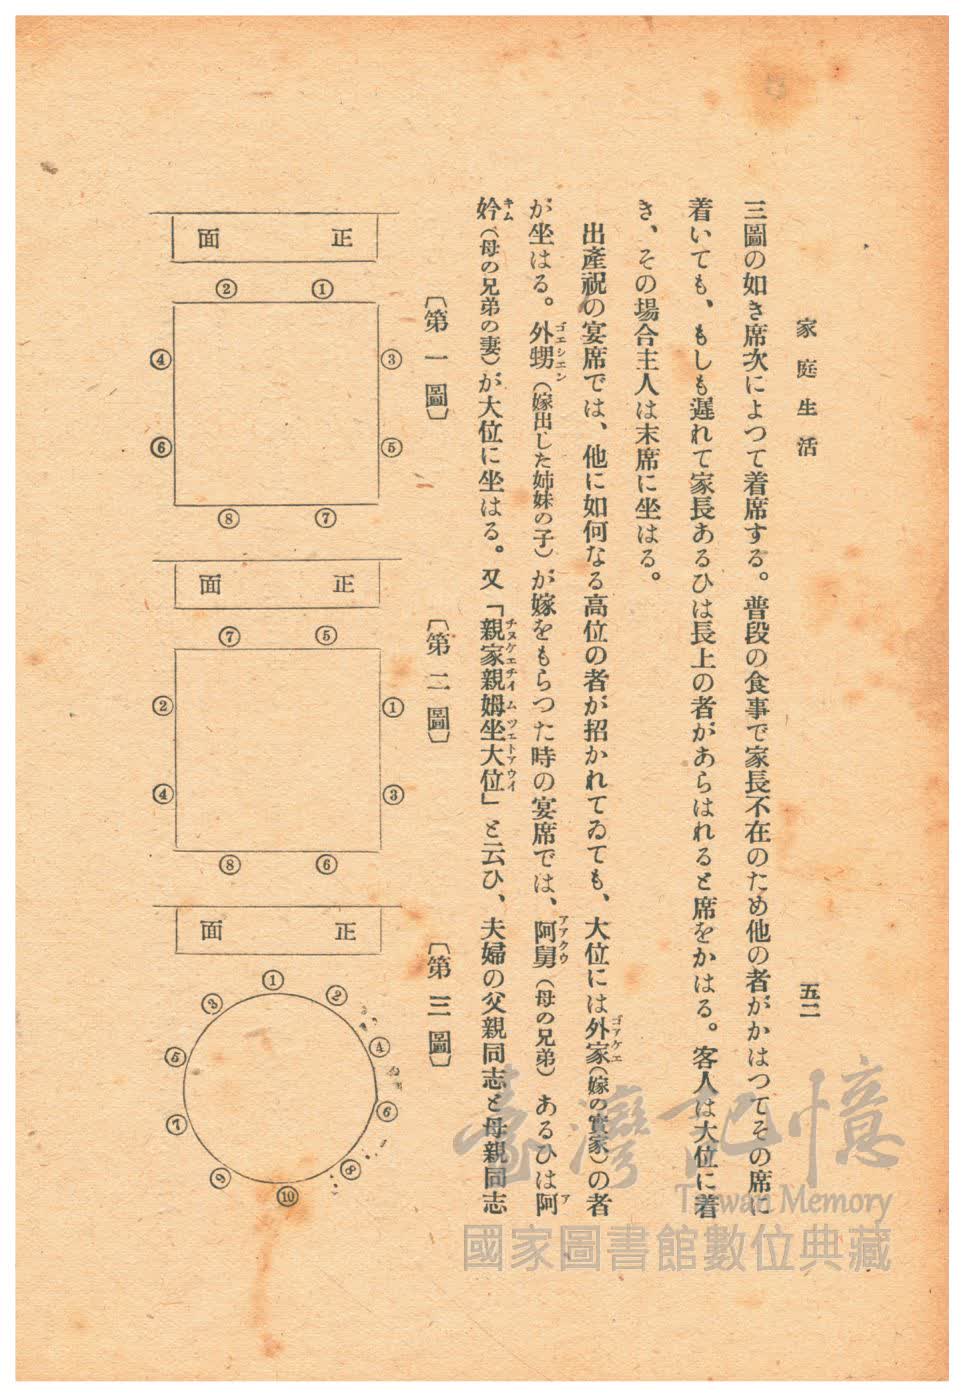 家庭生活
五二
三圖の如き席次によつて着席する。普段の食事で家長不在のため他の者がかはつてその席に
着いても、もしも遲れて家長あるひは長上の者があらはれると席をかはる。客人は大位に着
き、その場合主人は末席に坐はる。
出產祝の宴席では、他に如何なる高位の者が招かれてゐても、大位には外家(嫁の實家)の者
ゴアケエ
が坐はる。外甥(嫁出した姉妹の子)が嫁をもらつた時の宴席では、阿舅(母の兄弟)あるひは阿
ゴエシエン
アアクウ
ア
妗(母の兄弟の妻)が大位に坐はる。又「親家親姆坐大位」と云ひ、夫婦の父親同志と母親同志
キム
チヌケエチイムツエトアウイ
〔第一圖〕
正面
①
②
③
④
⑤
⑥
⑦
⑧
〔第二圖〕
正面
⑤
⑦
①
②
③
④
⑥
⑧
〔第三圖〕
正面
①
②
③
④
⑤
⑥
⑦
⑧
⑨
⑩
臺灣記憶
Taiwan Memory
國家圖書館數位典藏